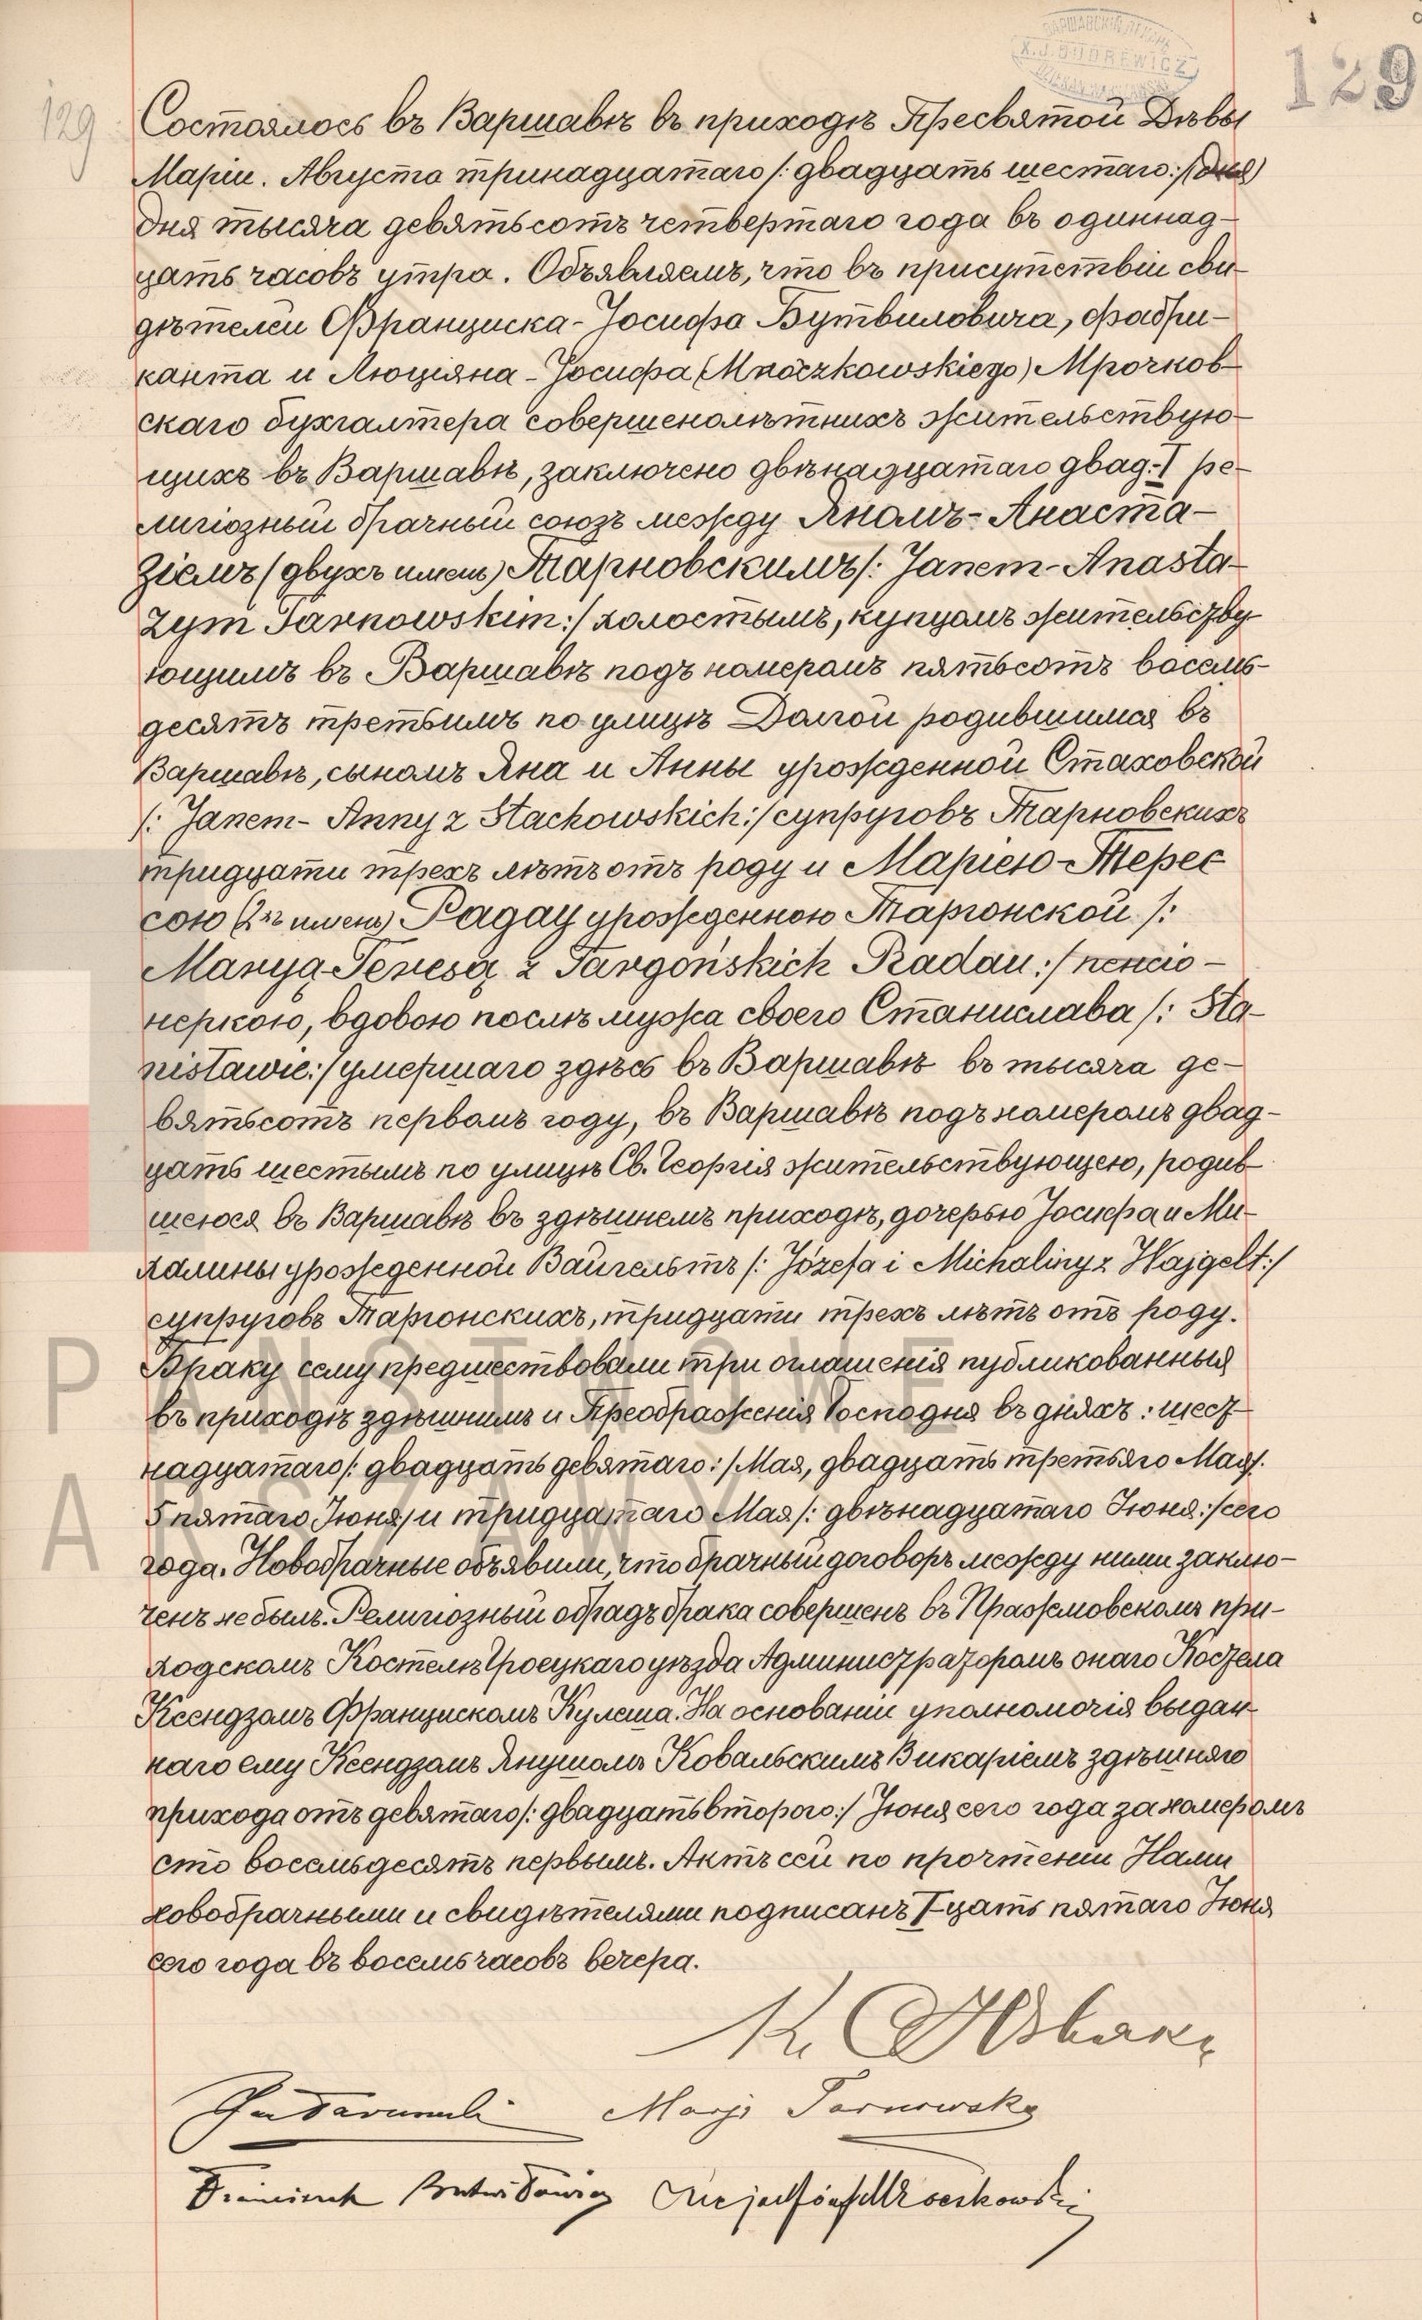 129
129
ВАРШАВСКІЙ
X. J. BUDREWICZ
Состоялось въ Варшавѣ въ приходѣ Пресвятой Дѣвы
Маріи. Августа тринадцатаго /: двадцать шестаго:/ (дня)
дня тысяча девятьсотъ четвертаго года въ одиннад-
цать часовъ утра. Объявляемъ, что въ присутствіи сви-
дѣтелей Франциска-Іосифа Бутвиловича, фабри-
канта и Люціяна-Іосифа (Mroczkowskiego) Мрочков-
скаго бухгалтера совершенолѣтнихъ жительствую-
щихъ въ Варшавѣ, заключено двѣнадцатаго двад:-I ре-
лигіозный брачный союзъ между Яномъ-Анаста-
зіемъ (двухъ именъ) Тарновскимъ /: Janem-Anasta-
zym Tarnowskim:/ холостымъ, купцомъ жительству-
ющимъ въ Варшавѣ подъ номеромъ пятьсотъ восемь-
десятъ третьимъ по улицѣ Долгой родившимся въ
Варшавѣ, сыномъ Яна и Анны урожденной Стаховской
/: Janem- Anny z Stachowskich:/ супруговъ Тарновскихъ
тридцати трехъ лѣтъ отъ роду и Маріею-Терес
сою (2хъ именъ) Радау урожденною Таргонской /:
Maryą-Teresą z Targońskich Radau:/ пенсіо-
неркою, вдовою послѣ мужа своего Станислава /: Sta-
nisławie:/ умершаго здѣсь въ Варшавѣ въ тысяча де-
вятьсотъ первомъ году, въ Варшавѣ подъ номеромъ двад-
цать шестымъ по улицѣ Св. Георгія жительствующею, родив-
шеюся въ Варшавѣ въ здѣшнемъ приходѣ, дочерью Іосифа и Ми-
халины урожденной Вайгельтъ /: Józefa i Michaliny z Wajgelt:/
супруговъ Таргонскихъ, тридцати трехъ лѣтъ отъ роду.
Браку сему предшествовали три оглашенія публикованныя
въ приходѣ здѣшнимъ и Преображенія Господня въ дняхъ: шест-
надцатаго /: двадцать девятаго:/ Мая, двадцать третьяго Мая /:
5 пятаго Іюня:/ и тридцатаго Мая /: двѣнадцатаго Іюня:/ сего
года. Новобрачные объявили, что брачный договоръ между ними заклю-
ченъ не былъ. Религіозный обрадъ брака совершенъ въ Пражмовскомъ при-
ходскомъ Костелѣ Гроецкаго уѣзда Администраторомъ онаго Костела
Ксендзомъ Францискомъ Кулеша. На основаніи уполномочія выдан-
наго ему Ксендзомъ Янушомъ Ковальскимъ Викаріемъ здѣшняго
прихода отъ девятаго /: двадцать второго:/ Іюня сего года за номеромъ
сто восемьдесятъ первымъ. Актъ сей по прочтеніи Нами
новобрачными и свидѣтелями подписанъ I-цать пятаго Іюня
сего года въ восемь часовъ вечера.
Marja Tarnowska
Franciszek Butwiłowicz Lucjan Józef Mroczkowski
PAŃSTWOWE
WARSZAWY